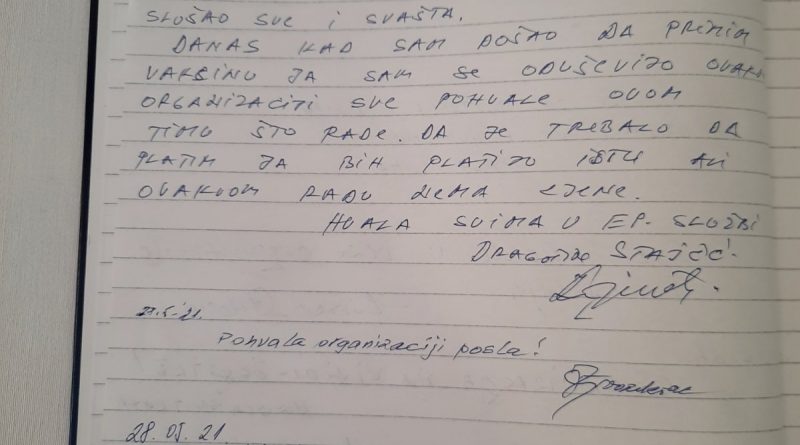 SLUŠAO SVE I SVAŠTA.
DANAS KAD SAM DOŠAO DA PRIMIM
VAKCINU JA SAM SE ODUŠEVIJO OVAKO
ORGANIZACIJI SVE POHVALE OVOM
TIMU ŠTO RADE. DA JE TREBALO DA
PLATIM JA BIH PLATIJO ISTU ALI
OVAKVOM RADU NEMA CJENE.
HVALA SVIMA U EP. SLUŽBI
STAJČIĆ.
Pohvala organizaciji posla!
28.05.21.